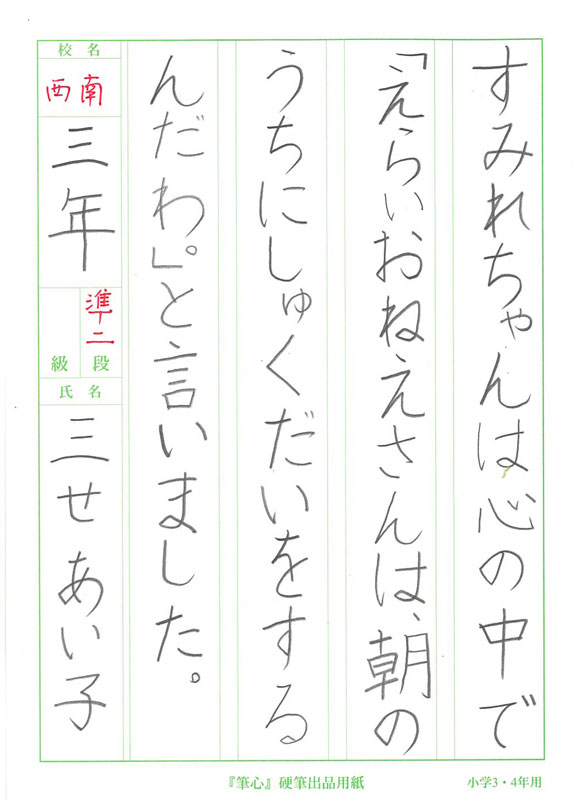 すみれちゃんは心の中で
「えらいおねえさんは、朝の
うちにしゅくだいをする
んだわ。」と言いました。
校名
西南
三年
準二
級段
氏名
三せあい子
『筆心』硬筆出品用紙
小学3・4年用